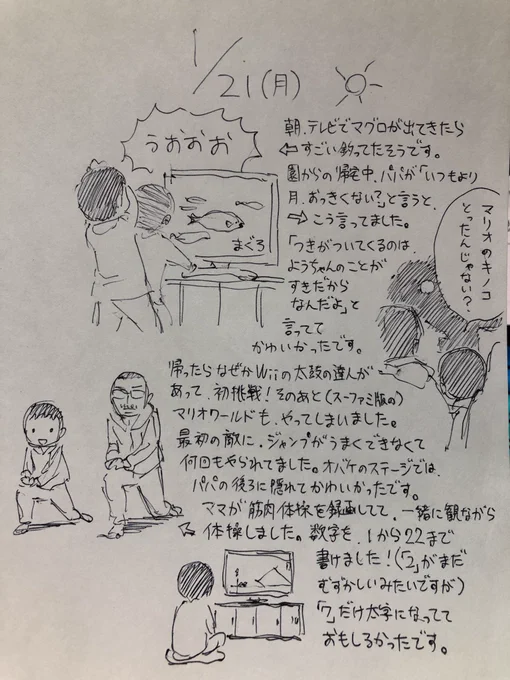 1/21(月)
うおおお
まぐろ
朝、テレビでマグロが出てきたら
⇦すごい釣ってたそうです。
園からの帰宅中、パパが「いつもより
月、おっきくない?」と言うと、
⇨こう言ってました。
マリオのキノコ
とったんじゃない?
「つきがついてくるのは
ようちゃんのことが
すきだから
なんだよ」と
言ってて
かわいかったです。
帰ったらなぜかWiiの太鼓の達人が
あって、初挑戦!そのあと(スーファミ版の)
マリオワールドも、やってしまいました。
最初の敵に、ジャンプがうまくできなくて
何回もやられてました。オバケのステージでは、
パパの後ろに隠れてかわいかったです。
ママが筋肉体操を録画してて、一緒に観ながら
体操しました。数字を、1から22まで
書けました!(「2」がまだ
むずかしいみたいですが)
「7」だけ太字になってて
おもしろかったです。